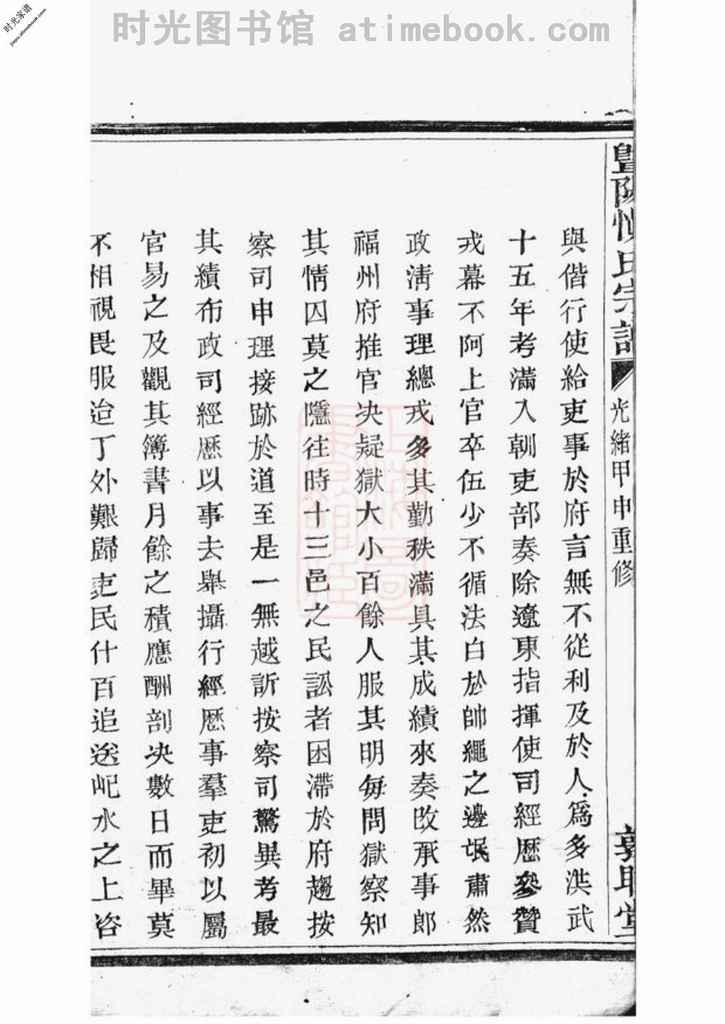 时光图书馆 atimebook.com
时光家谱
暨陽慎氏宗譜 光緒甲申重修
與偕行使給吏事於府言無不從利及於人爲多洪武
十五年考滿入朝吏部奏除遼東指揮使司經歷參贊
戎幕不阿上官卒伍少不循法白於帥繩之邊氓肅然
政淸事理總戎多其勤秩滿具其成績來奏改承事郎
福州府推官决疑獄大小百餘人服其明每問獄察知
其情囚莫之隱往時十三邑之民訟者困滯於府趨按
察司申理接跡於道至是一無越訴按察司驚異考最
其績布政司經歷以事去舉攝行經歷事羣吏初以屬
官易之及觀其簿書月餘之積應酬剖决數日而畢莫
不相視畏服迨丁外艱歸吏民什百追送屺水之上咨